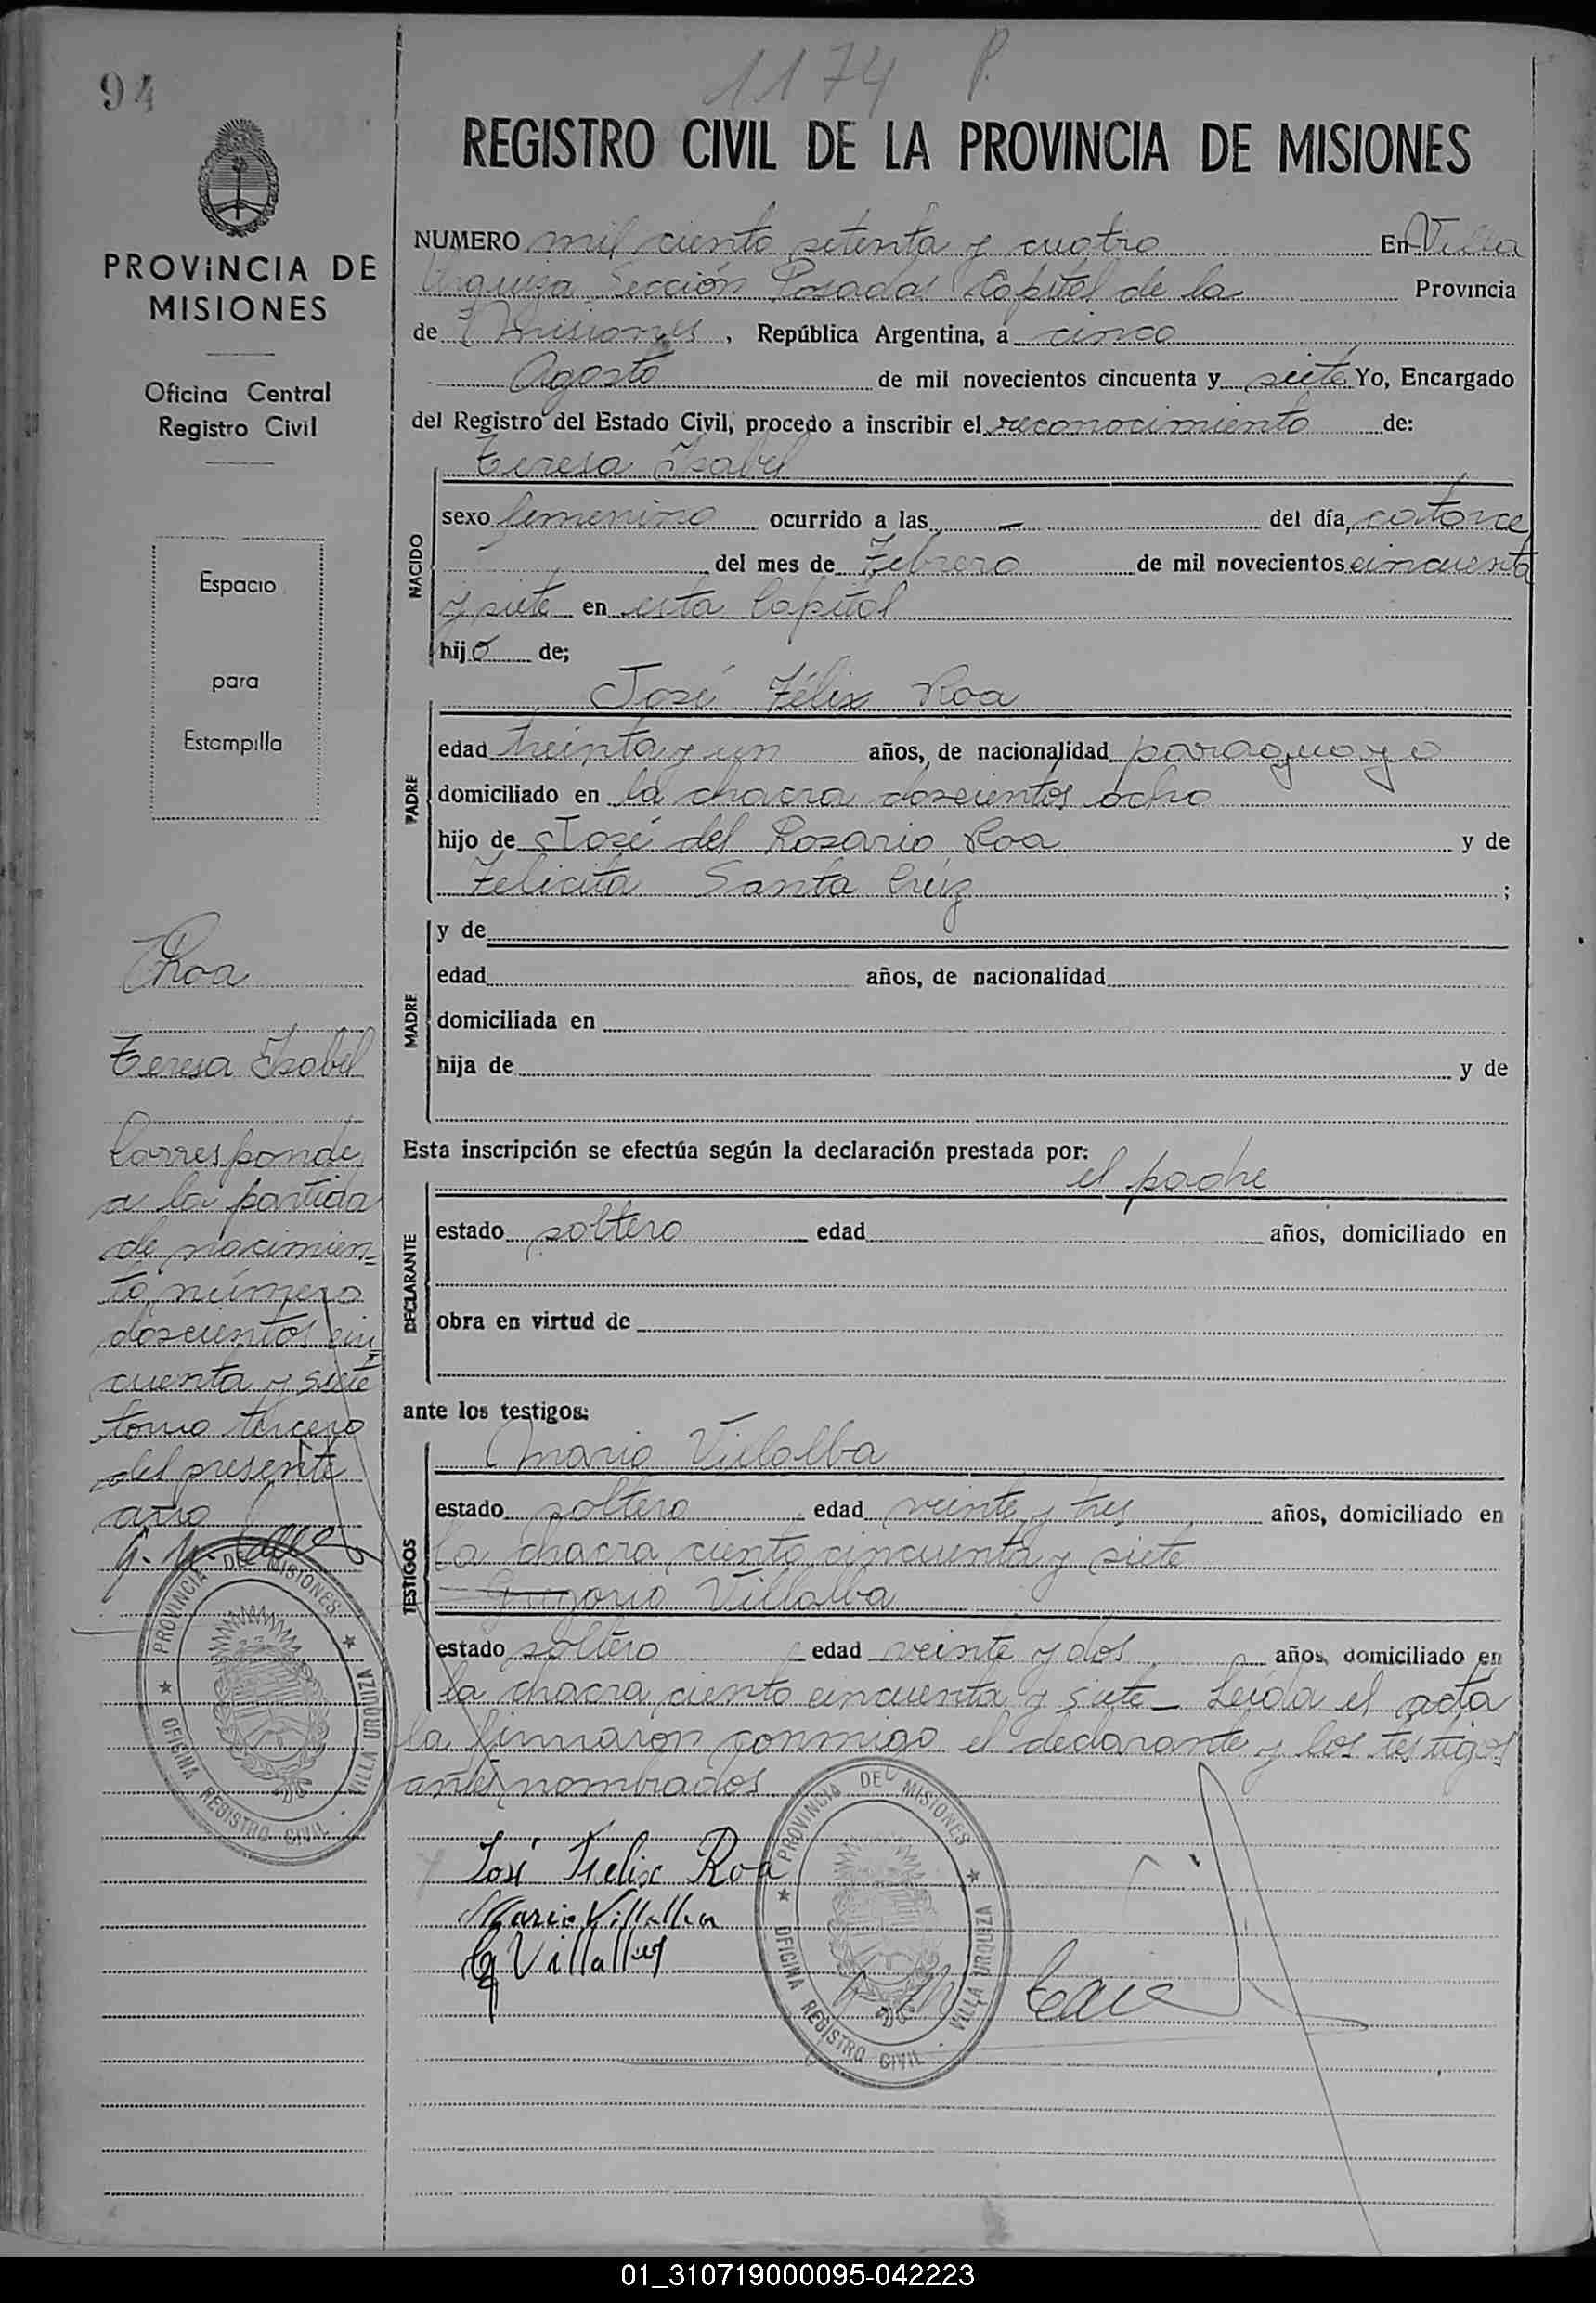 94
1174 P.
REGISTRO CIVIL DE LA PROVINCIA DE MISIONES
PROVINCIA DE
MISIONES
Oficina Central
Registro Civil
Espacio
para
Estampilla
Roa
Teresa Isabel
Corresponde
a la partida
de nacimien=
to número
doscientos cin
cuenta y siete
tomo tercero
del presente
año
PROVINCIA DE MISIONES
OFICINA REGISTRO CIVIL
VILLA URQUIZA
NUMERO mil ciento setenta y cuatro En Villa
Urquiza Sección Posadas Capital de la Provincia
de Misiones, República Argentina, a cinco
Agosto de mil novecientos cincuenta y siete Yo, Encargado
del Registro del Estado Civil, procedo a inscribir el reconocimiento de:
Teresa Isabel
NACIDO
sexo femenino ocurrido a las - del día, catorce
del mes de Febrero de mil novecientos cincuenta
y siete en esta Capital
hijo de;
José Félix Roa
PADRE
edad treinta y un años, de nacionalidad paraguayo
domiciliado en la chacra doscientos ocho
hijo de José del Rosario Roa y de
Felicita Santa Cruz ;
MADRE
y de
edad años, de nacionalidad
domiciliada en
hija de y de
Esta inscripción se efectúa según la declaración prestada por:
el padre
DECLARANTE
estado soltero edad años, domiciliado en
obra en virtud de
ante los testigos:
Mario Villalba
TESTIGOS
estado soltero edad veinte y tres años, domiciliado en
la chacra ciento cincuenta y siete
Gregorio Villalba
estado soltero edad veinte y dos años, domiciliado en
la chacra ciento cincuenta y siete - Leida el acta
la firmaron conmigo el declarante y los testigos
antes nombrados.
José Felix Roa
Mario Villalba
G Villalba
PROVINCIA DE MISIONES
OFICINA REGISTRO CIVIL
VILLA URQUIZA
01_310719000095-042223